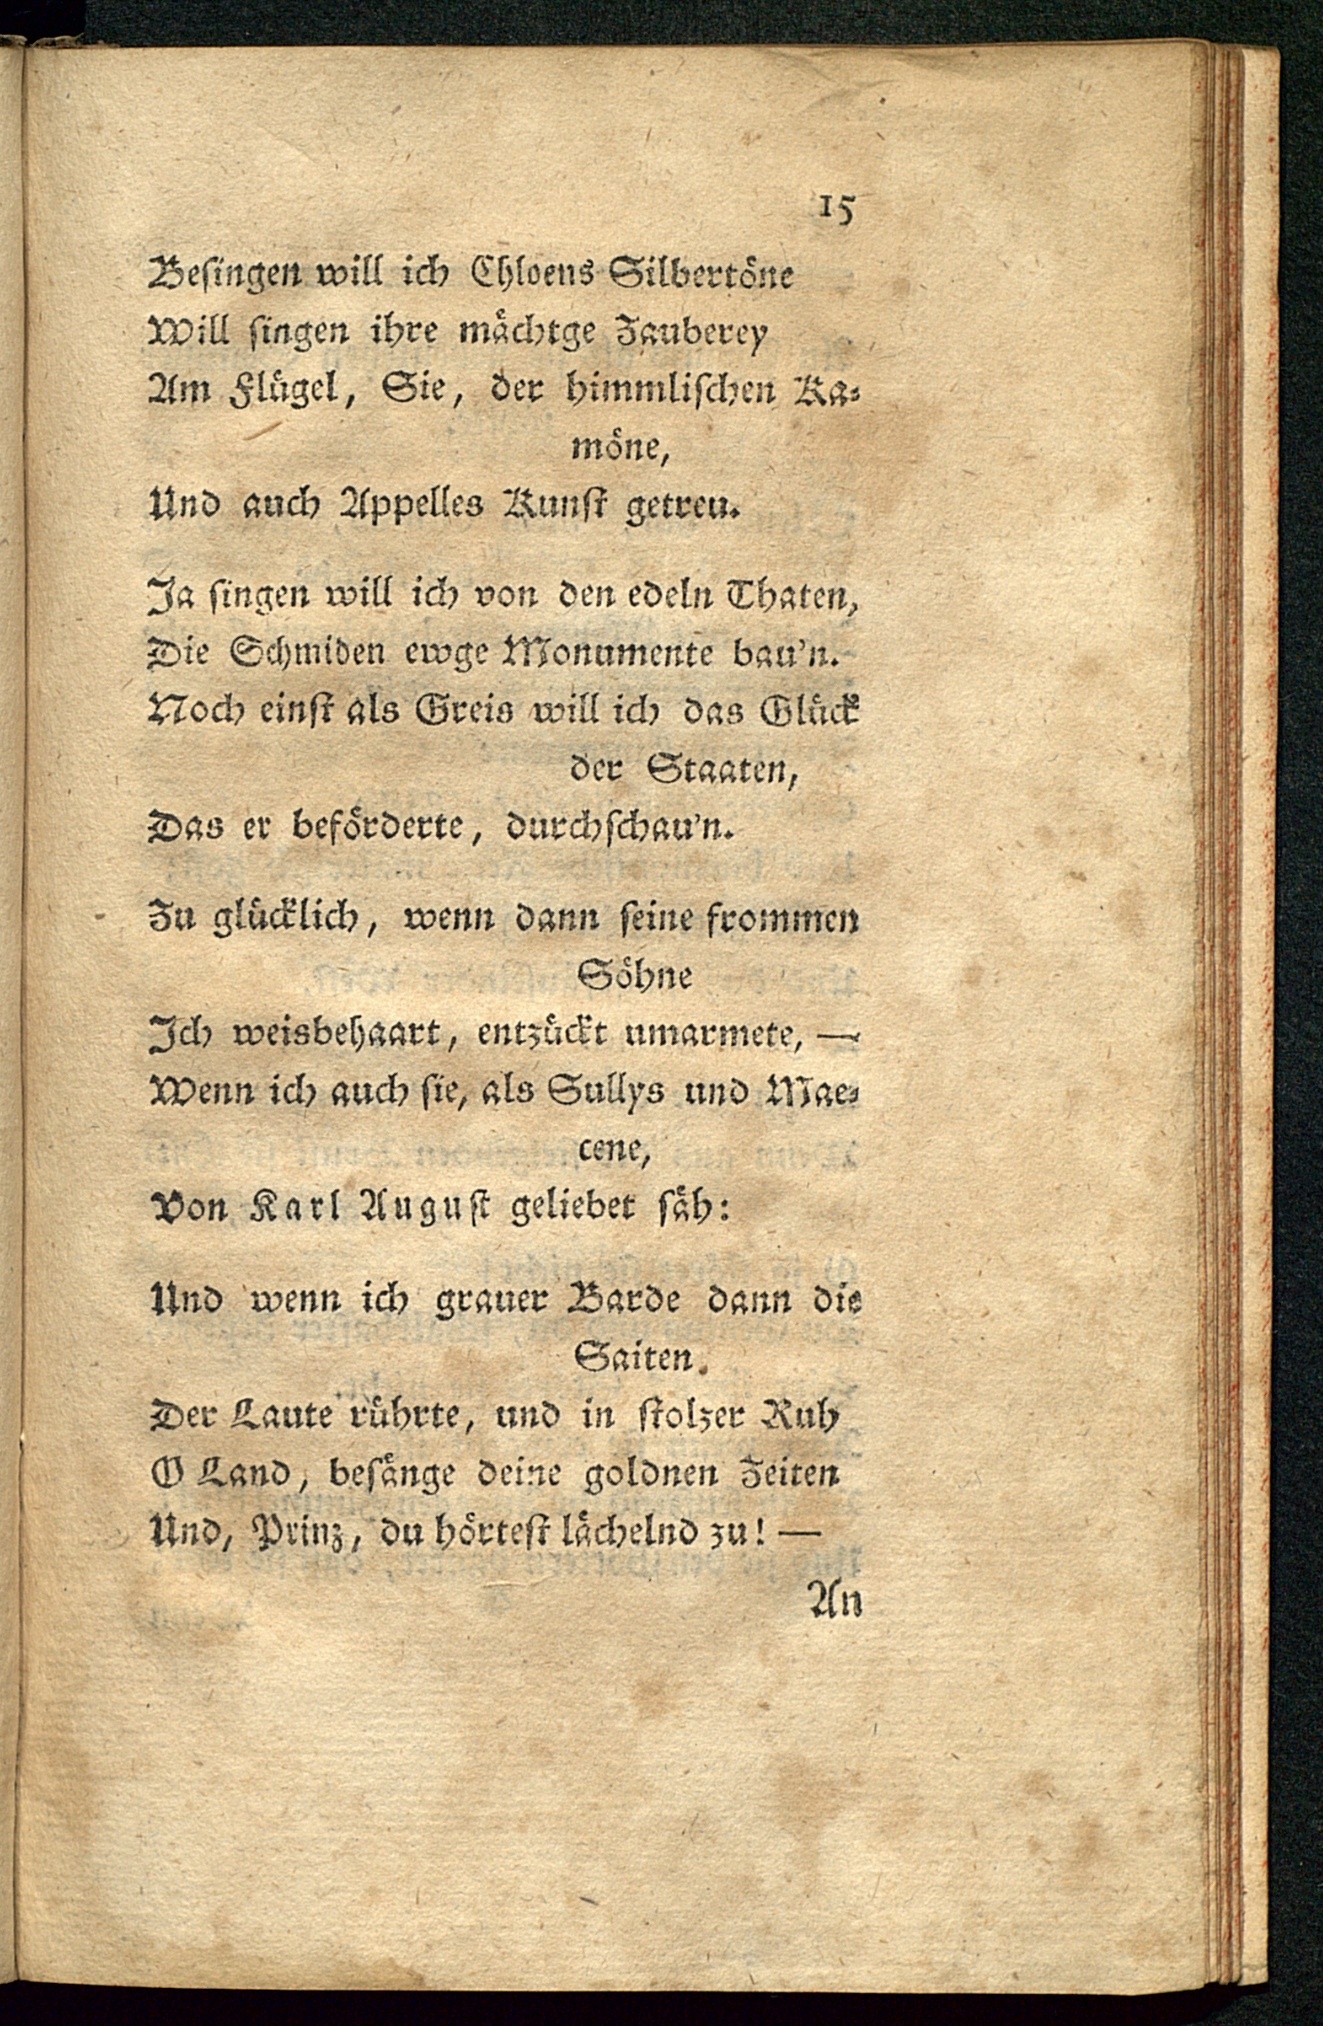 15
Besingen will ich Chloens Silbertöne
Will singen ihre mächtge Zauberey
Am Flügel, Sie, der himmlischen Ka-
möne,
Und auch Appelles Kunst getreu.
Ja singen will ich von den edeln Thaten,
Die Schmiden ewge Monumente bau'n.
Noch einst als Greis will ich das Glück
der Staaten,
Das er beförderte, durchschau'n.
Zu glücklich, wenn dann seine frommen
Söhne
Ich weisbehaart, entzückt umarmete, —
Wenn ich auch sie, als Sullys und Mae-
cene,
Von Karl August geliebet säh:
Und wenn ich grauer Barde dann die
Saiten.
Der Laute rührte, und in stolzer Ruh
O Land, besänge deine goldnen Zeiten
Und, Prinz, du hörtest lächelnd zu! —
An